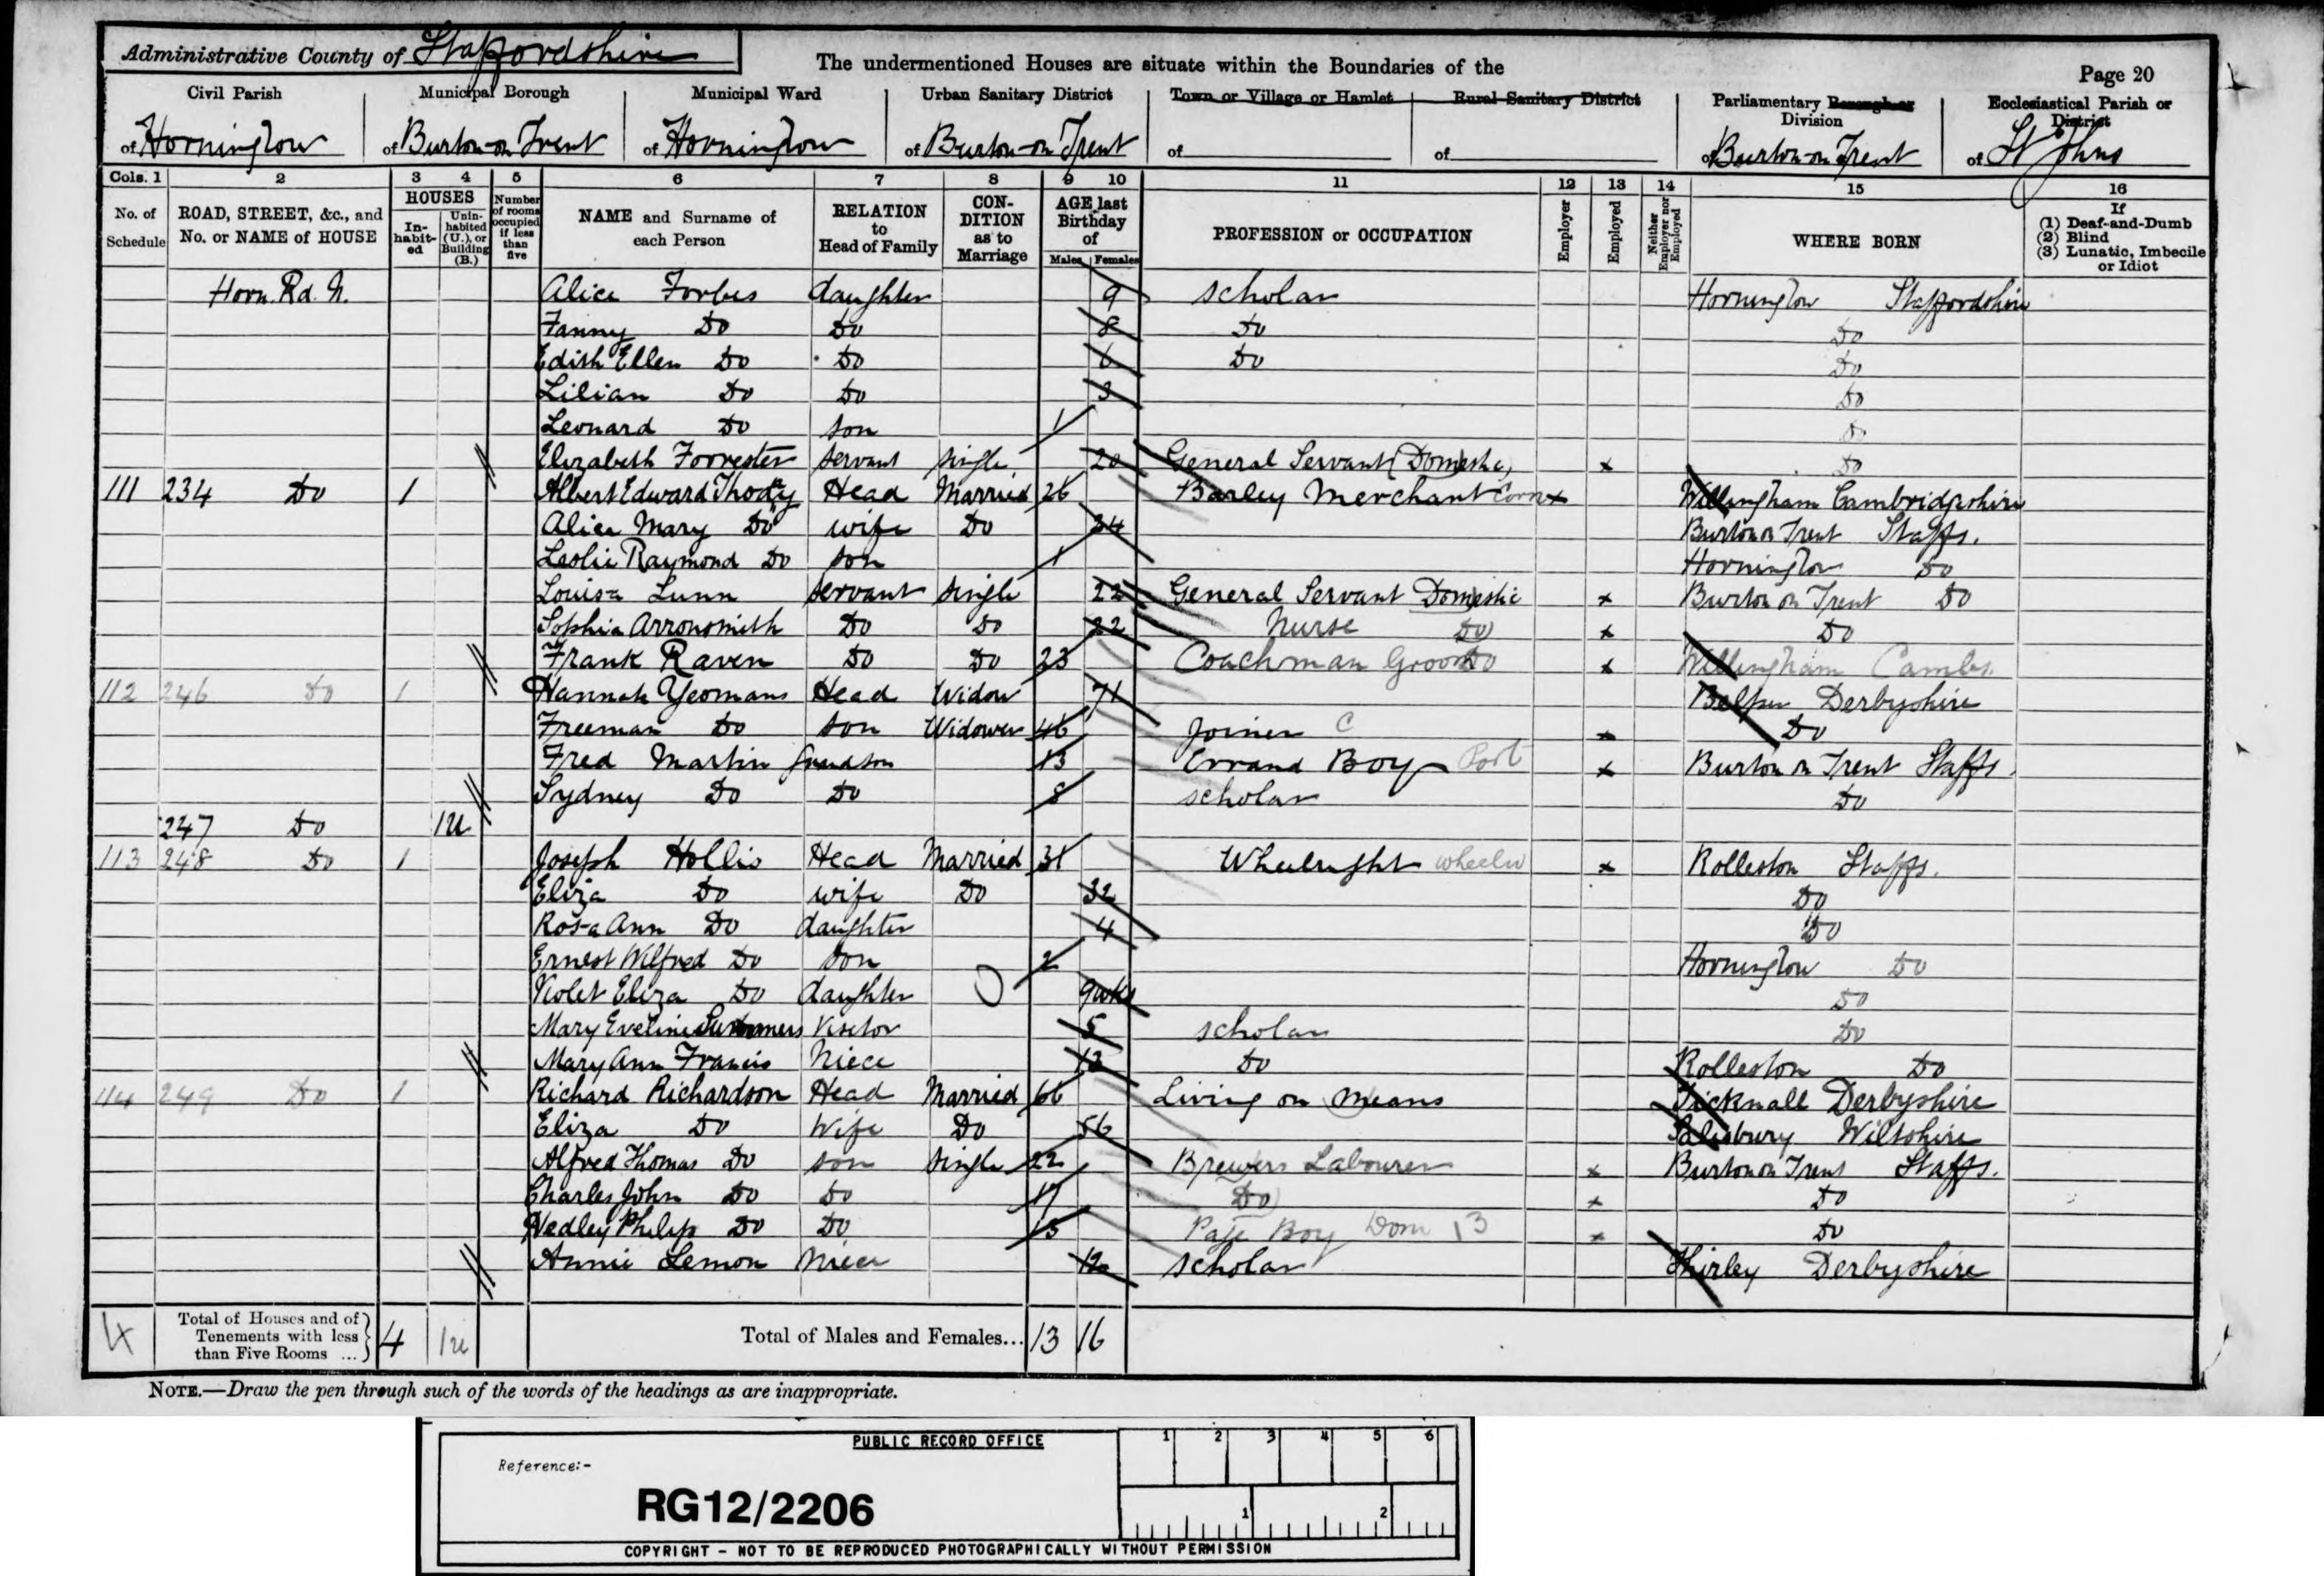 Administrative County of Staffordshire
The undermentioned Houses are situate within the Boundaries of the
Page 20
Civil Parish Municipal Borough Municipal Ward Urban Sanitary District Town or Village or Hamlet Rural Sanitary District Parliamentary Borough or Division Ecclesiastical Parish or District
of Horninglow of Burton-on-Trent of Horninglow of Burton-on-Trent of of of Burton-on-Trent of St Johns
Cols. 1 2 3 4 5 6 7 8 9 10 11 12 13 14 15 16
No. of Schedule ROAD, STREET, &c., and No. or NAME of HOUSE HOUSES Inhabited Uninhabited (U.), or Building (B.) Number of rooms occupied if less than five NAME and Surname of each Person RELATION to Head of Family CONDITION as to Marriage AGE last Birthday of Males Females PROFESSION or OCCUPATION Employer Employed Neither Employer nor Employed WHERE BORN If (1) Deaf-and-Dumb (2) Blind (3) Lunatic, Imbecile or Idiot
Horn. Rd. N. Alice Forbes daughter 9 scholar Horninglow Staffordshire
Fanny Do Do 8 Do Do
Edith Ellen Do Do 6 Do Do
Lilian Do Do 3 Do
Leonard Do son 1 Do
Elizabeth Forrester servant single 20 General Servant (Domestic) x Do
111 234 Do 1 Albert Edward Thody Head Married 26 Barley Merchant Corn x Willingham Cambridgeshire
Alice Mary Do wife Do 24 Burton on Trent Staffs.
Leslie Raymond Do son 1 Horninglow Do
Louisa Lunn servant single 22 General Servant Domestic x Burton on Trent Do
Sophia Arrowsmith Do Do 22 Nurse Do x Do
Frank Raven Do Do 23 Coachman Groom Do x Willingham Cambs.
112 246 Do 1 Hannah Yeomans Head Widow 71 Belper Derbyshire
Freeman Do son Widower 46 Joiner C x Do
Fred Martin Grandson 13 Errand Boy Port x Burton on Trent Staffs
Sydney Do Do 8 scholar Do
247 Do 1U
113 248 Do 1 Joseph Hollis Head Married 31 Wheelright wheelw x Rolleston Staffs.
Eliza Do wife Do 32 Do
Rosa Ann Do daughter 4 Do
Ernest Wilfred Do son 2 Horninglow Do
Violet Eliza Do daughter 9wks Do
Mary Eveline Visitor 5 scholar Do
Mary Ann Francis Niece 13 Do Rolleston Do
114 249 Do 1 Richard Richardson Head Married 66 Living on Means Ticknall Derbyshire
Eliza Do Wife Do 56 Salisbury Wiltshire
Alfred Thomas Do son single 22 Brewers Labourer x Burton on Trent Staffs.
Charles John Do Do 17 Do x Do
Hedley Philip Do Do 15 Page Boy Dom 13 x Do
Annie Lemon Niece 12 scholar Shirley Derbyshire
4 Total of Houses and of Tenements with less than Five Rooms ... 4 1U Total of Males and Females... 13 16
NOTE.—Draw the pen through such of the words of the headings as are inappropriate.
PUBLIC RECORD OFFICE
1 2 3 4 5 6
Reference:-
RG12/2206
1 2
COPYRIGHT - NOT TO BE REPRODUCED PHOTOGRAPHICALLY WITHOUT PERMISSION